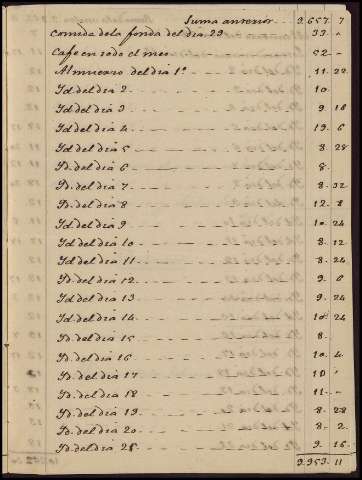 Suma anterior 9.657. 7
Comida de la fonda del dia 29 33. -
Cafe en todo el mes 52 -
Almuerzo del dia 1º 11. 22
Id. del dia 2 10.
Id. del dia 3 9. 18
Id. del dia 4 13. 6
Id. del dia 5 8. 28
Id. del dia 6 8.
Id. del dia 7 8. 32
Id. del dia 8 12. 8
Id. del dia 9 10. 24
Id. del dia 10 8. 12
Id. del dia 11 8. 24
Id. del dia 12 9. 6
Id. del dia 13 9. 24
Id. del dia 14 10. 24
Id. del dia 15 8.
Id. del dia 16 10. 4
Id. del dia 17 10
Id. del dia 18 11. -
Id. del dia 19 8. 28
Id. del dia 20 8. 2
Id. del dia 28 9. 16
9.959. 11